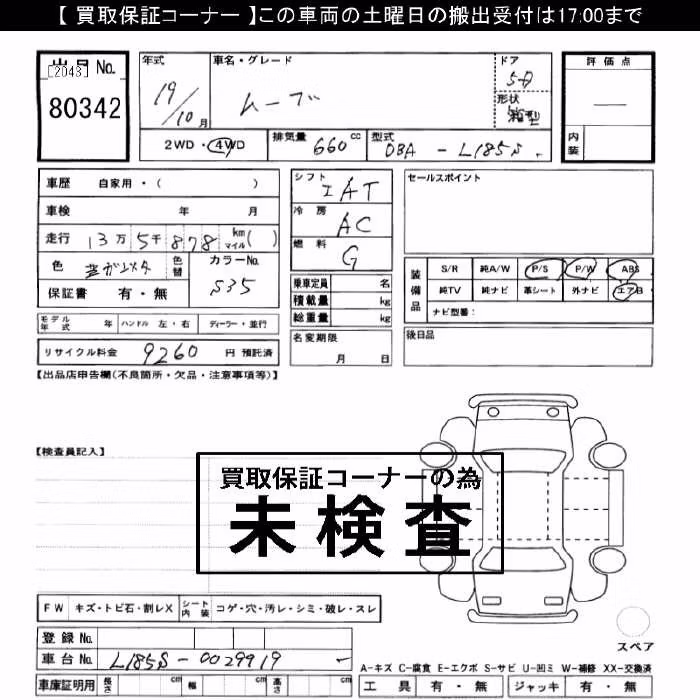 【 買取保証コーナー 】この車両の土曜日の搬出受付は17:00まで
出品 No.
[2043]
80342
年式
19/10月
車名・グレード
ムーブ
ドア
5D
形状
箱型
評価点
—
内装
2WD・4WD
排気量 660 cc
型式 DBA - L185S
車歴 自家用・( )
車検 年 月
走行 13万5千878 km マイル( )
色
色替
カラーNo.
S35
保証書 有・無
シフト
IAT
冷房
AC
燃料
G
乗車定員 名
積載量 kg
総重量 kg
セールスポイント
装備品
S/R 純A/W P/S P/W ABS
純TV 純ナビ 革シート 外ナビ エアB
ナビ型番:
モデル年式 年 ハンドル 左・右 ディーラー・並行
リサイクル料金 9260 円 預託済
名変期限
月 日
後日品
【出品店申告欄(不良箇所・欠品・注意事項等)】
【検査員記入】
買取保証コーナーの為
未検査
FW キズ・トビ石・割レX シート内装 コゲ・穴・汚レ・シミ・破レ・スレ
スペア
登録 No.
車台 No. L185S-0029919
A-キズ C-腐食 E-エクボ S-サビ U-凹ミ W-補修 XX-交換済
車庫証明用 長さ cm 幅 cm 高さ cm
工具 有・無 ジャッキ 有・無